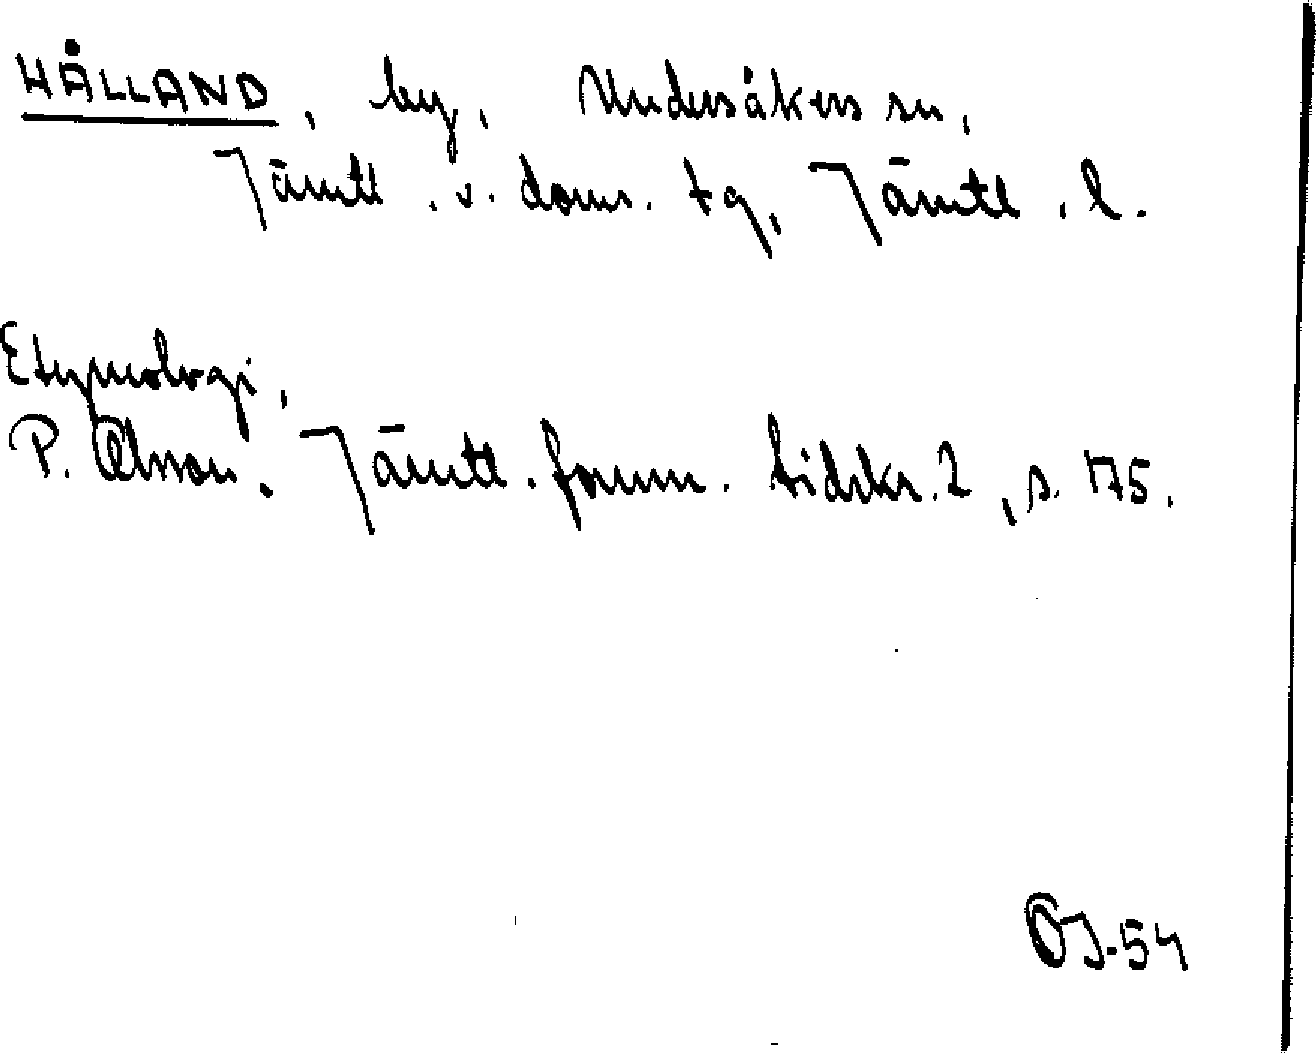 HÅLLAND, by, Undersåkers sn,
Jämtl. v. doms. tg, Jämtl. l.
Etymologi,
P. Olsson. Jämtl. fornm. tidskr. 2, s. 175.
OJ-54